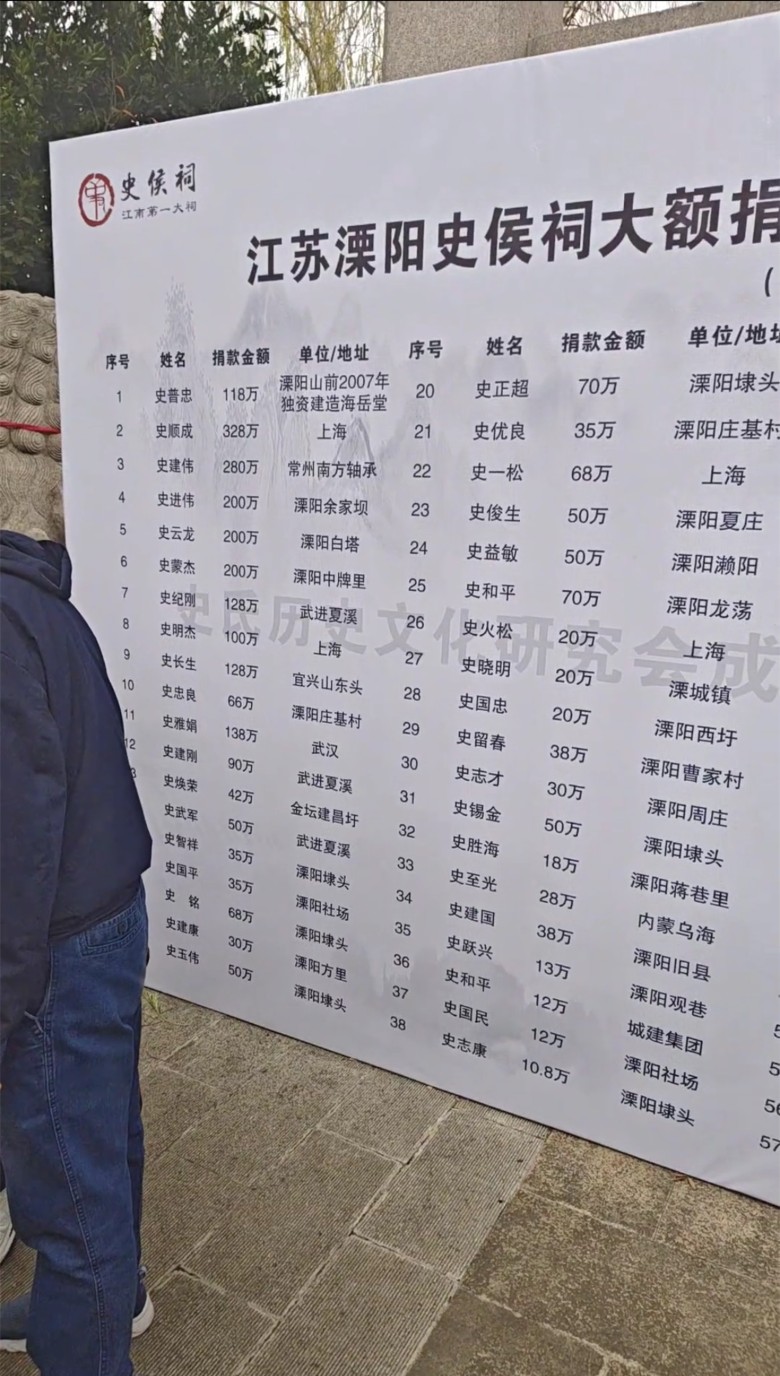 史侯祠
江南第一大祠
江苏溧阳史侯祠大额捐
(
序号 姓名 捐款金额 单位/地址 序号 姓名 捐款金额 单位/地址
1 史普忠 118万 溧阳山前2007年独资建造海岳堂 20 史正超 70万 溧阳埭头
2 史顺成 328万 上海 21 史优良 35万 溧阳庄基村
3 史建伟 280万 常州南方轴承 22 史一松 68万 上海
4 史进伟 200万 溧阳余家坝 23 史俊生 50万 溧阳夏庄
5 史云龙 200万 溧阳白塔 24 史益敏 50万 溧阳濑阳
6 史蒙杰 200万 溧阳中牌里 25 史和平 70万 溧阳龙荡
7 史纪刚 128万 武进夏溪 26 史火松 20万 上海
8 史明杰 100万 上海 27 史晓明 20万 溧城镇
9 史长生 128万 宜兴山东头 28 史国忠 20万 溧阳西圩
10 史忠良 66万 溧阳庄基村 29 史留春 38万 溧阳曹家村
11 史雅娟 138万 武汉 30 史志才 30万 溧阳周庄
12 史建刚 90万 武进夏溪 31 史锡金 50万 溧阳埭头
3 史焕荣 42万 金坛建昌圩 32 史胜海 18万 溧阳蒋巷里
史武军 50万 武进夏溪 33 史至光 28万 内蒙乌海
史智祥 35万 溧阳埭头 34 史建国 38万 溧阳旧县
史国平 35万 溧阳社场 35 史跃兴 13万 溧阳观巷
史 铭 68万 溧阳埭头 36 史和平 12万 城建集团 5
史建康 30万 溧阳方里 37 史国民 12万 溧阳社场 5
史玉伟 50万 溧阳埭头 38 史志康 10.8万 溧阳埭头 56
57
史氏历史文化研究会成